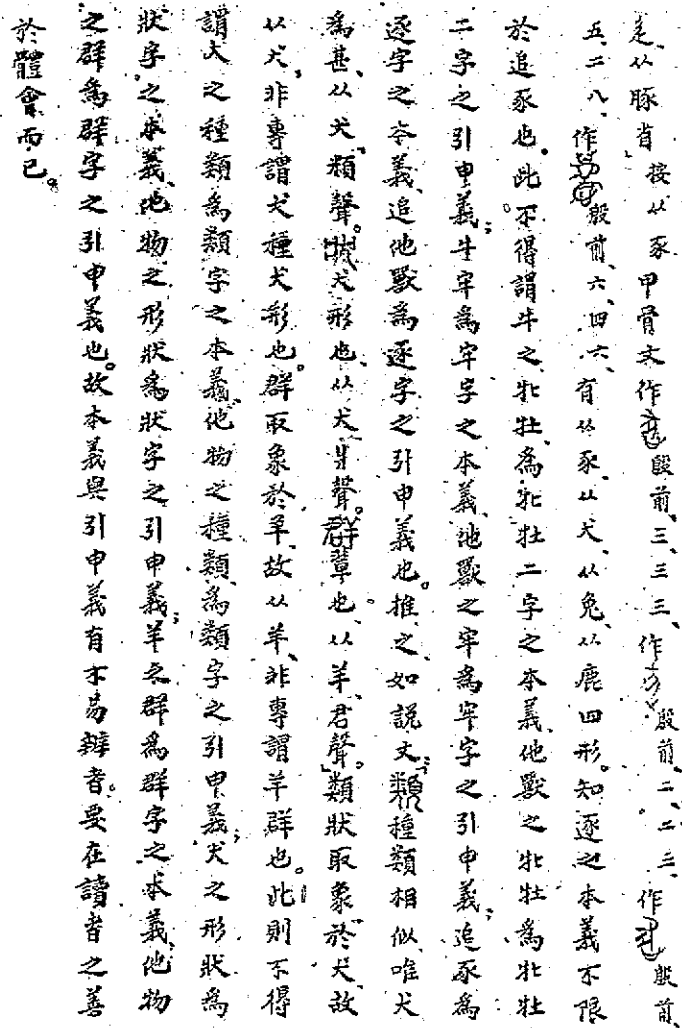 辵、从豚省、按从豕、甲骨文作殷前、三、三三、作殷前、二、二三、作殷前、
五、二八、作殷前、六、四六、有从豕、从犬、从兔、从鹿四形。知逐之本義不限
於追豕也。此不得謂牛之牝牡、為牝牡二字之本義、他獸之牝牡為牝牡
二字之引申義；牛牢為牢字之本義、他獸之牢為牢字之引申義；追豕為
逐字之本義、追他獸為逐字之引申義也。推之、如説文：類種類相似唯犬
為甚、从犬、頪聲。狀犬形也、从犬爿聲。群輩也。从羊、君聲。」類狀取象於犬、故
从犬、非專謂犬種犬形也。群取象於羊、故从羊、非專謂羊群也。此則不得
謂犬之種類為類字之本義、他物之種類、為類字之引申義；犬之形狀為
狀字之本義、他物之形狀為狀字之引申義；羊之群為群字之本義、他物
之群為群字之引申義也。故本義與引申義有不易辨者。要在讀者之善
於體會而已。